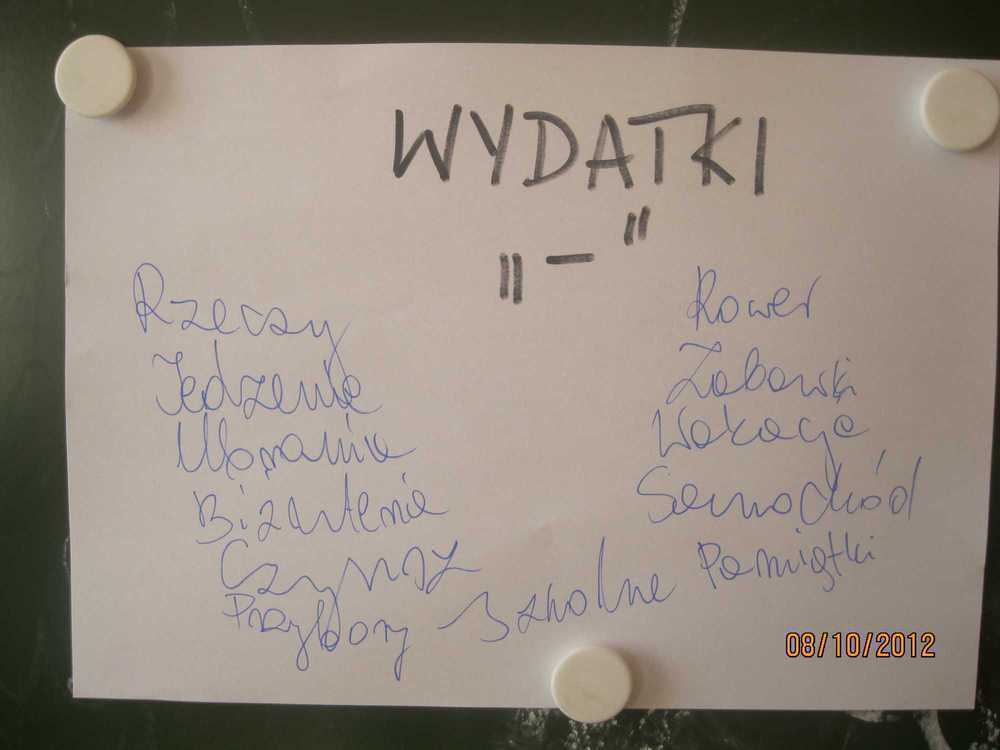 WYDATKI
„ – "
Rzeczy
Jedzenie
Ubrania
Biżuteria
Czynsz
Przybory szkolne
Rower
Zabawki
Wakacje
Samochód
Pamiątki
08/10/2012